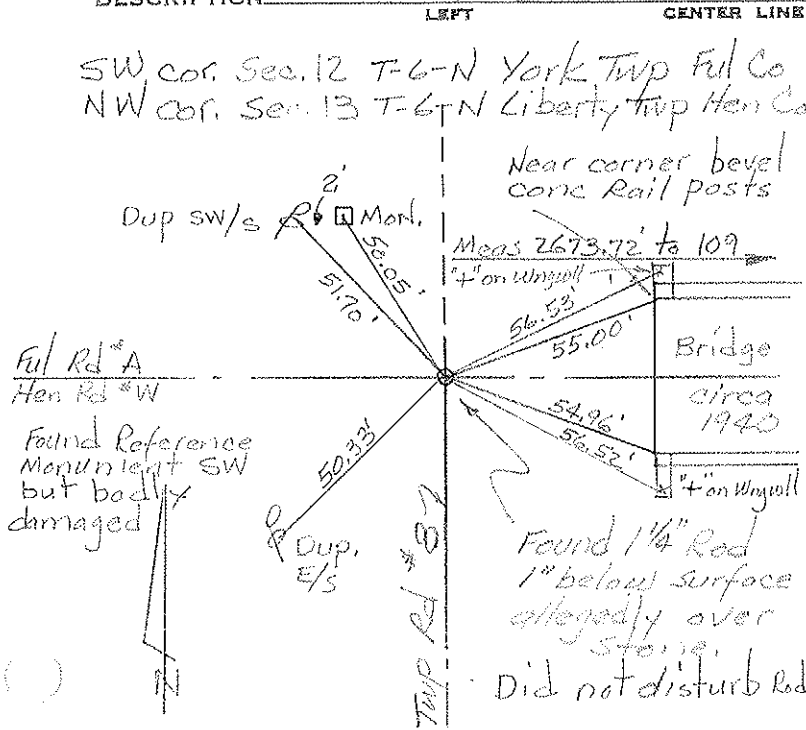 DESCRIPTION
LEFT
CENTER LINE
SW cor. Sec. 12 T-6-N York Twp Ful Co
NW cor. Sec. 13 T-6-N Liberty Twp Hen Co
Near corner bevel
conc Rail posts
2'
Dup SW/s
Mon.
50.05'
51.70'
Meas 2673.72' to 109
"+" on Wngwll
56.53'
55.00'
Bridge
circa
1940
Ful Rd #A
Hen Rd #W
54.96'
56.52'
"+" on Wngwll
Found Reference
Monument SW
but badly
damaged
50.33'
Dup.
E/s
Twp Rd #
Found 1 1/4" Rod
1" below surface
allegedly over
Stone.
Did not disturb Rod
N